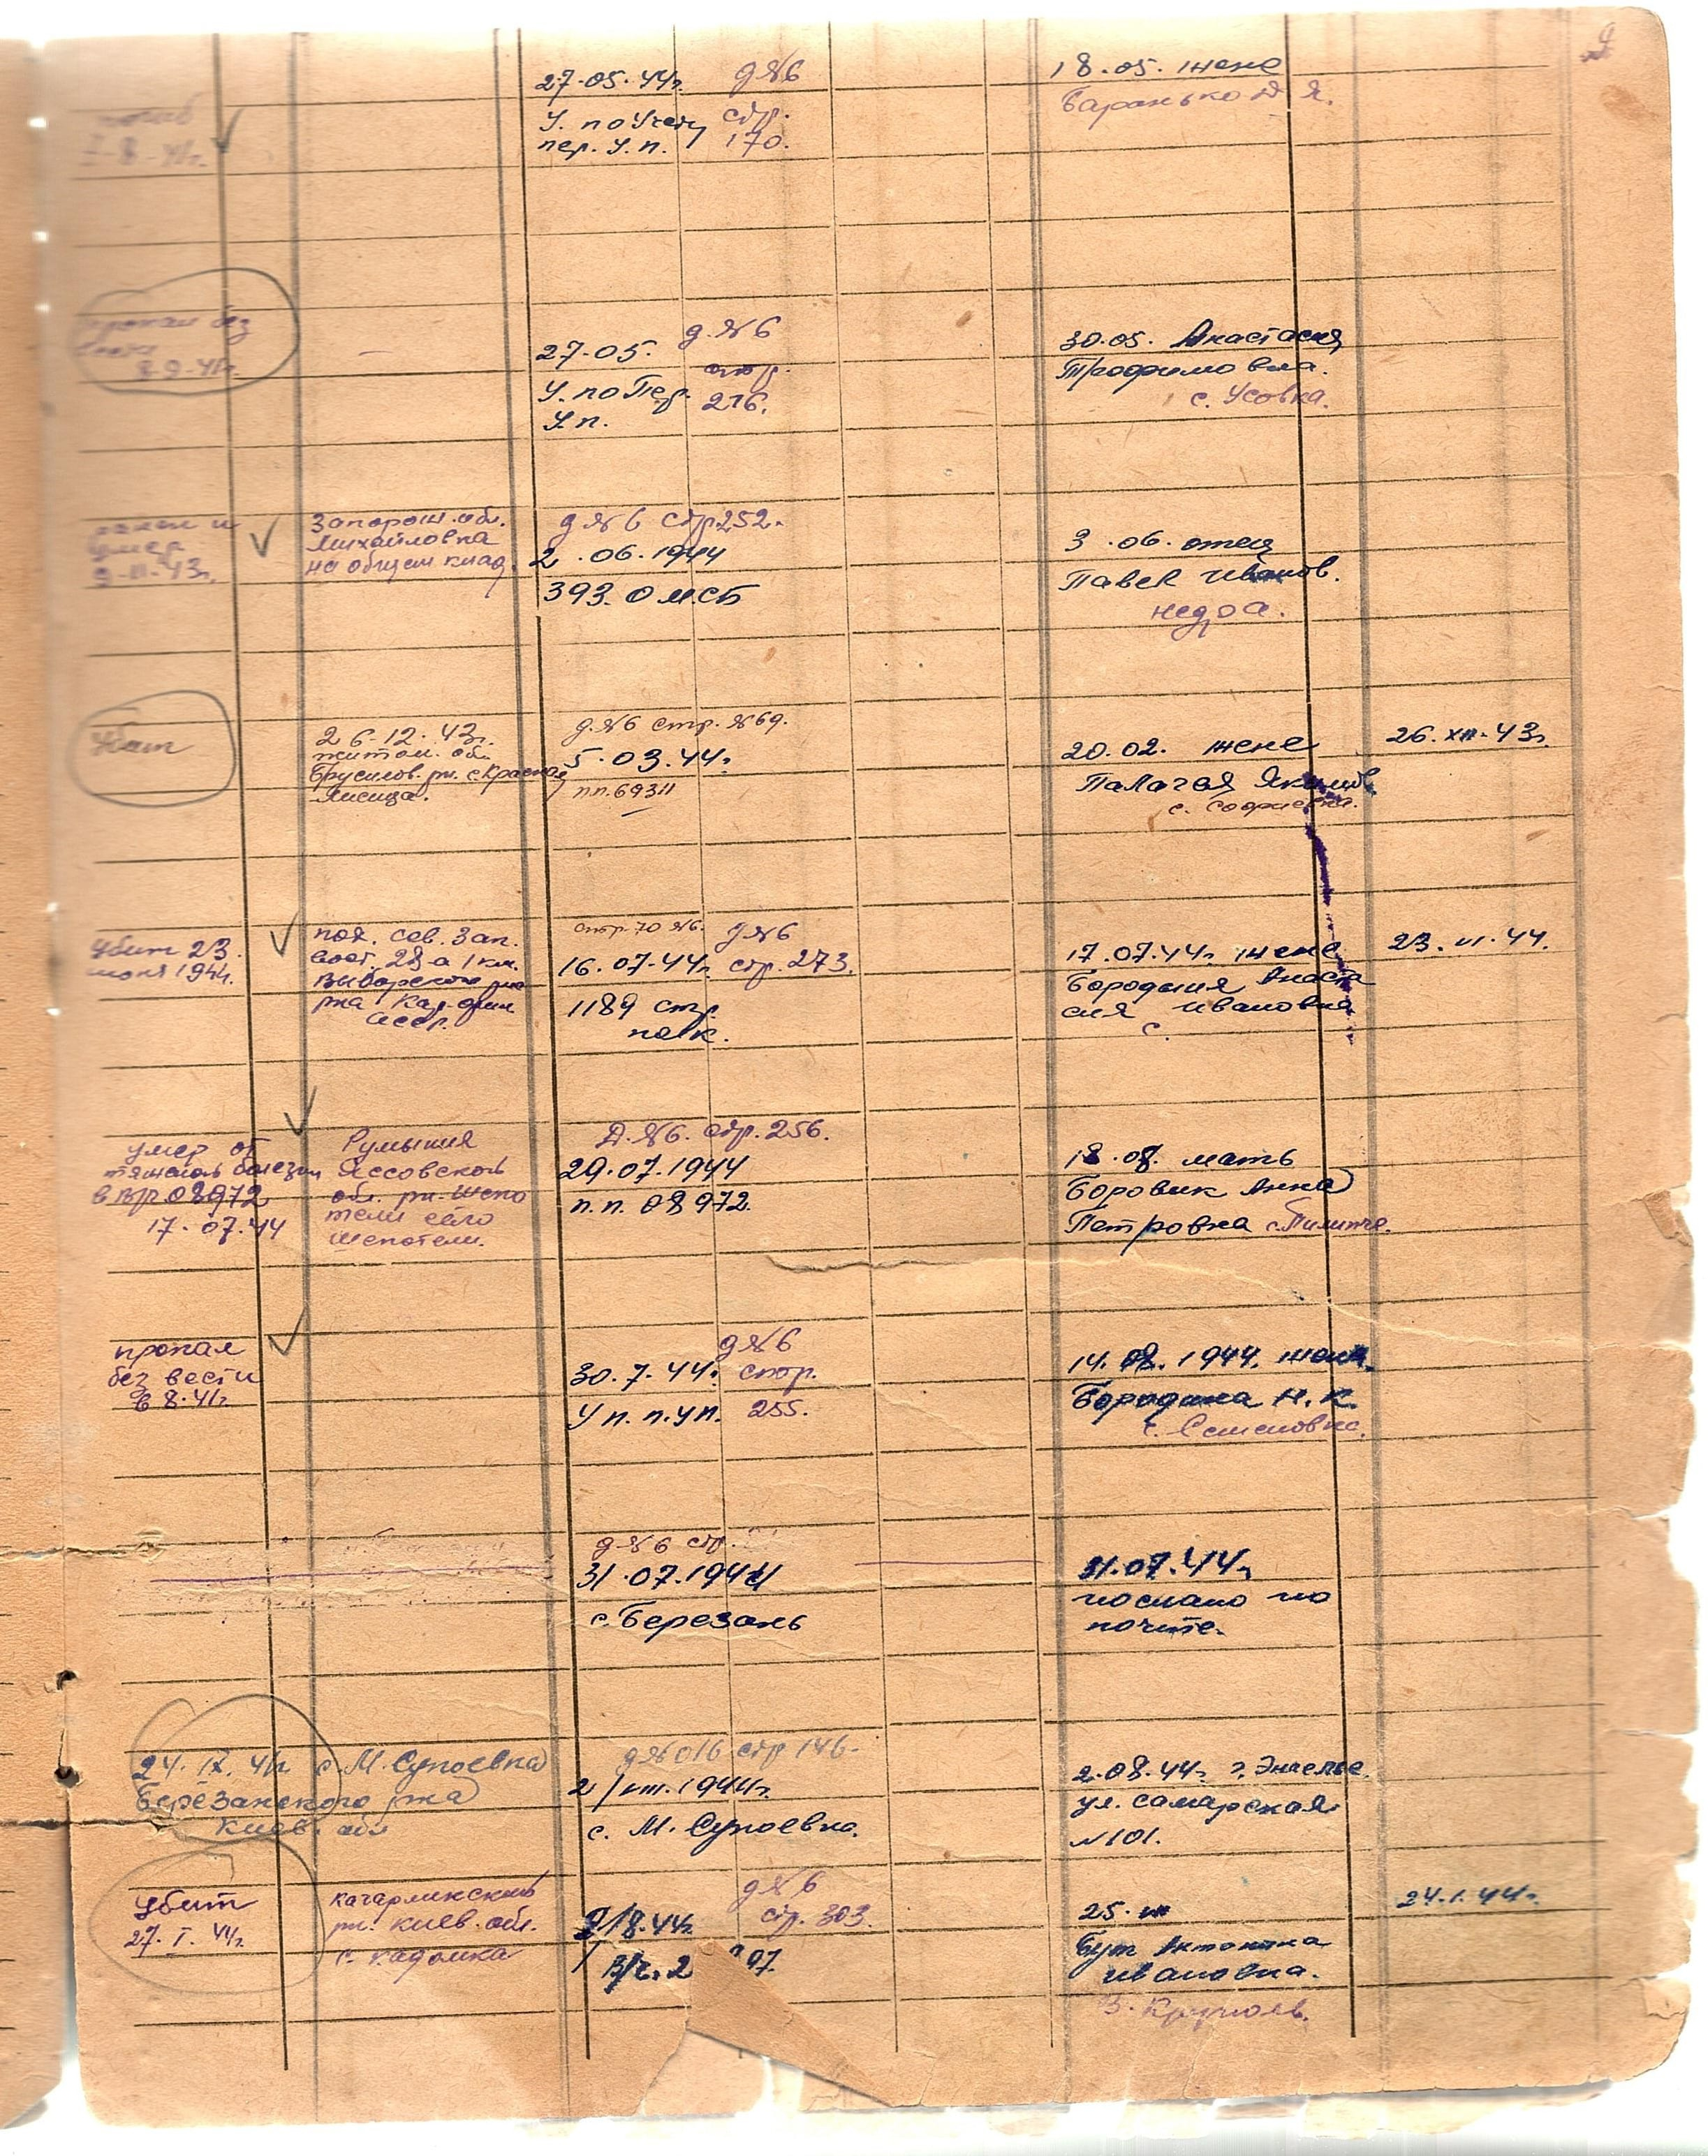 27.05.44г. д №6 18.05. жене
У. по Учету стр. Баранько Я.
7-8-41г. пер. У.п. 170.
пропал без
вести
8-9-41г.
27.05. д. №6 30.05. Анастасия
У. по Пер. стр. Трофимовна.
У.п. 216. с. Усовка.
ранен и
умер
9-11-43г.
Запорош. обл.
Михайловка
на общем клад.
д №6 стр 252.
2.06.1944
393. ОМСБ
3.06. отец
Павел Иванов.
Недра.
Убит
26.12.43г.
житом. обл.
Брусилов. рн. с. Красная
Лисица.
д. №6 стр. №69.
5.03.44г.
п.п. 69311
20.02. жене
Палагея Якимов
с. Софиевка.
26.XII.43г.
Убит 23.
июня 1944.
пох. сев. зап.
вост. 28-а 1 км.
Выборского
рна Кар-фин
ССР.
стр. 70 №6. д №6
16.07.44г. стр. 273.
1189 стр.
полк.
17.07.44г. жене
Бородыня Анаста
сия Ивановна
с.
23.VI.44.
умер от
тяжелой болезни
в ВПГ 08972
17.07.44
Румыния
Яссовской
обл. рн. Шепо
тели село
Шепотели.
Д. №6. стр. 256.
29.07.1944
п.п. 08972.
18.08. мать
Боровик Анна
Петровна с. Пилипче.
пропал
без вести
в 8.41г.
д №6
30.7.44г. стор.
У п. п. уп. 255.
14.08.1944. жена
Бородина Н.К.
с. Семеновка.
д №6 стр.
31.07.1944
с. Березань
31.07.44г.
послано по
почте.
24.IX.41г. с. М. Супоевка
Березанского рна
Киев. обл
д №016 стр 146.
2/VIII.1944г.
с. М. Супоевка.
2.08.44г. г. Энгельс
ул. Самарская
№101.
Убит
27.I.44г.
Кагарликский
рн. Киев. обл.
с. Кадомка
д №6
9/8.44г. стр. 303.
В/ч. 2 97.
25.VIII
Бут Антонина
Ивановна.
В. Крупол.
24.1.44г.